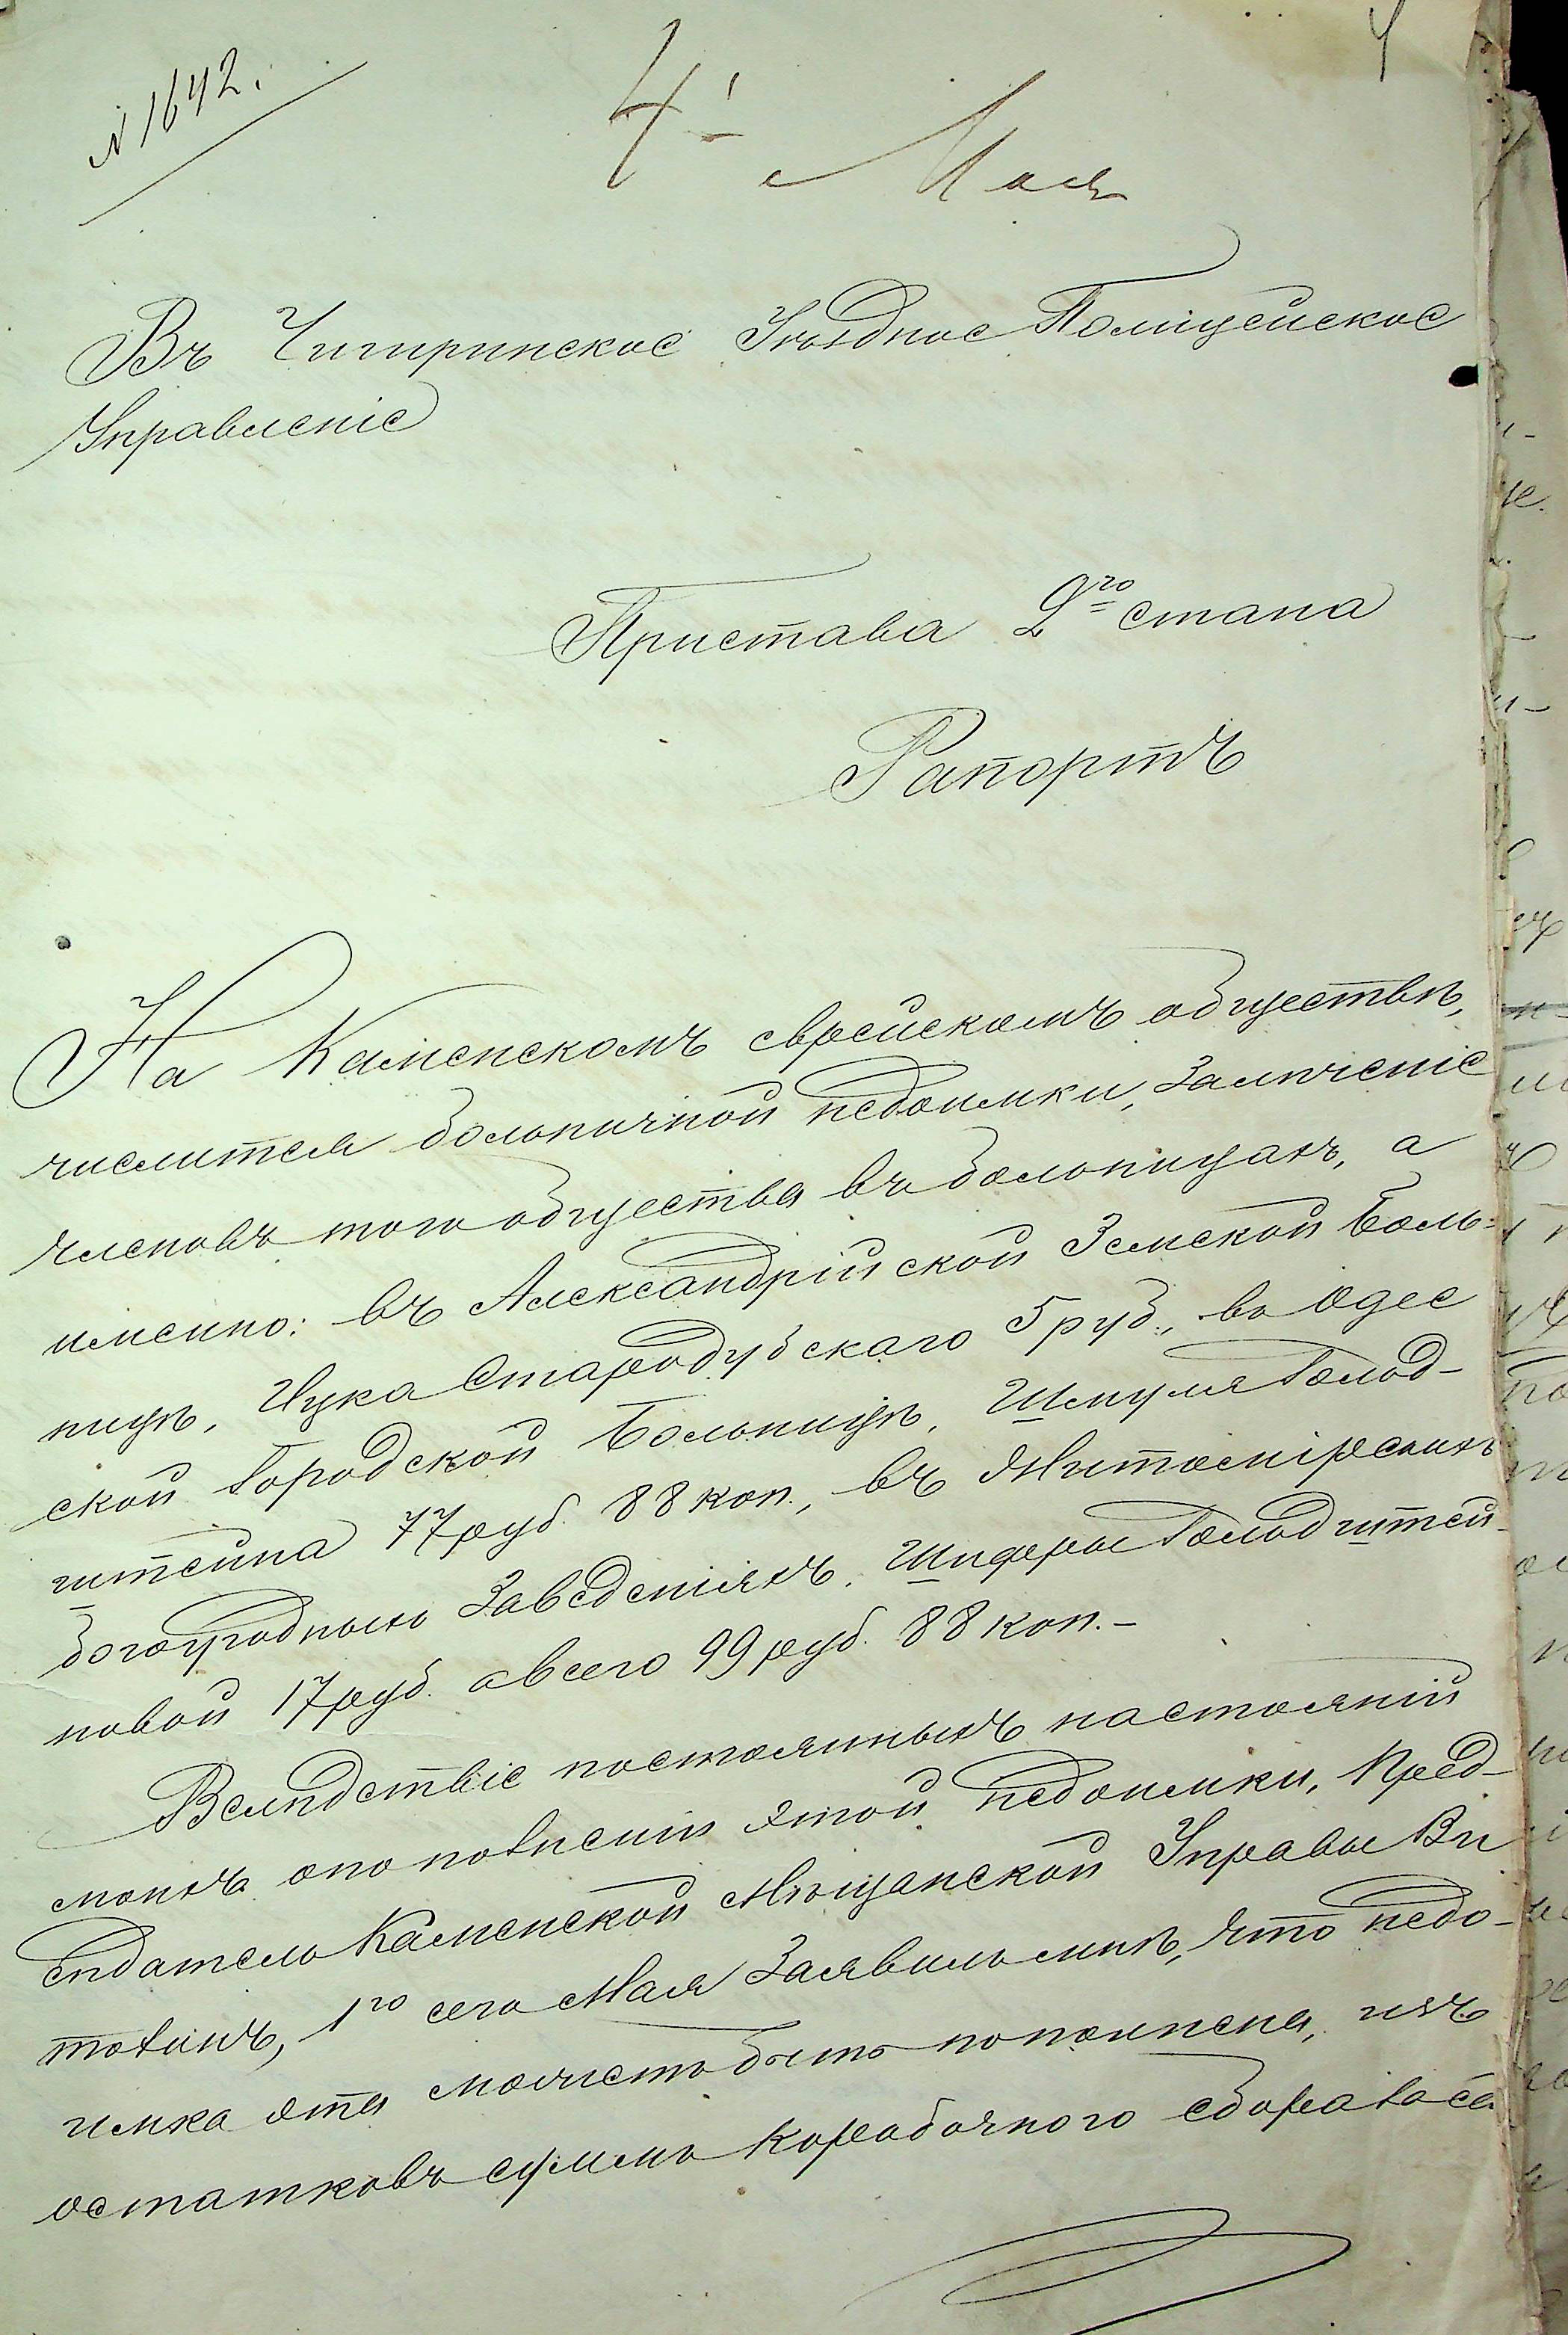 № 1642.
4
4го Мая
Въ Чигиринское Уѣздное Полицейское
Управленіе
Пристава 2го стана
Рапортъ
На Каменскомъ еврейскомъ обществѣ,
числится больничной недоимки, за лѣченіе
членовъ того общества въ больницахъ, а
именно: въ Александрійской Земской Боль=
ницѣ, Ицка Стародубскаго 5 руб., въ Одес
ской Городской Больницѣ, Шмуля Голод-
штейна 77 руб. 88 коп., въ Житомірскихъ
богоугодныхъ Заведеніяхъ, Шифры Голодштей-
новой 17 руб. а всего 99 руб. 88 коп.-
Вслѣдствіе постоянныхъ настояній
моихъ о пополненіи этой недоимки, Пред-
сѣдатель Каменской Мѣщанской Управы Ви
товичъ, 1го сего Мая Заявилъ мнѣ, что недо-
имка эта можетъ быть пополнена, изъ
остатковъ суммъ коробочного сбора